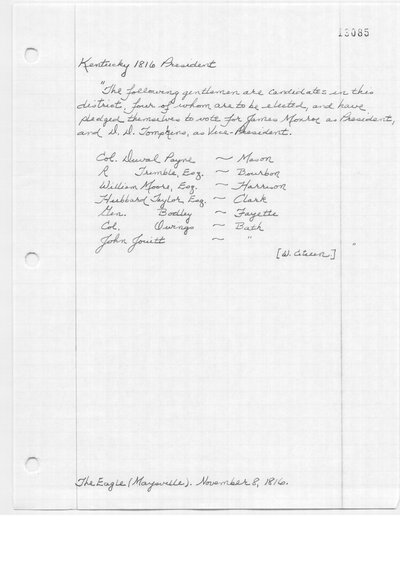 13085
Kentucky 1816 President
"The following gentlemen are candidates in this
district, four of whom are to be elected, and have
pledged themselves to vote for James Monroe as President,
and D. D. Tompkins, as Vice-President.
Col. Duval Payne ~ Mason
R Trimble, Esq. ~ Bourbon
William Moore, Esq. ~ Harrison
Hubbard Taylor Esq. ~ Clark
Gen. Bodley ~ Fayette
Col. Owings ~ Bath
John Jouitt ~ "
[W. Citizen] "
The Eagle (Maysville). November 8, 1816.